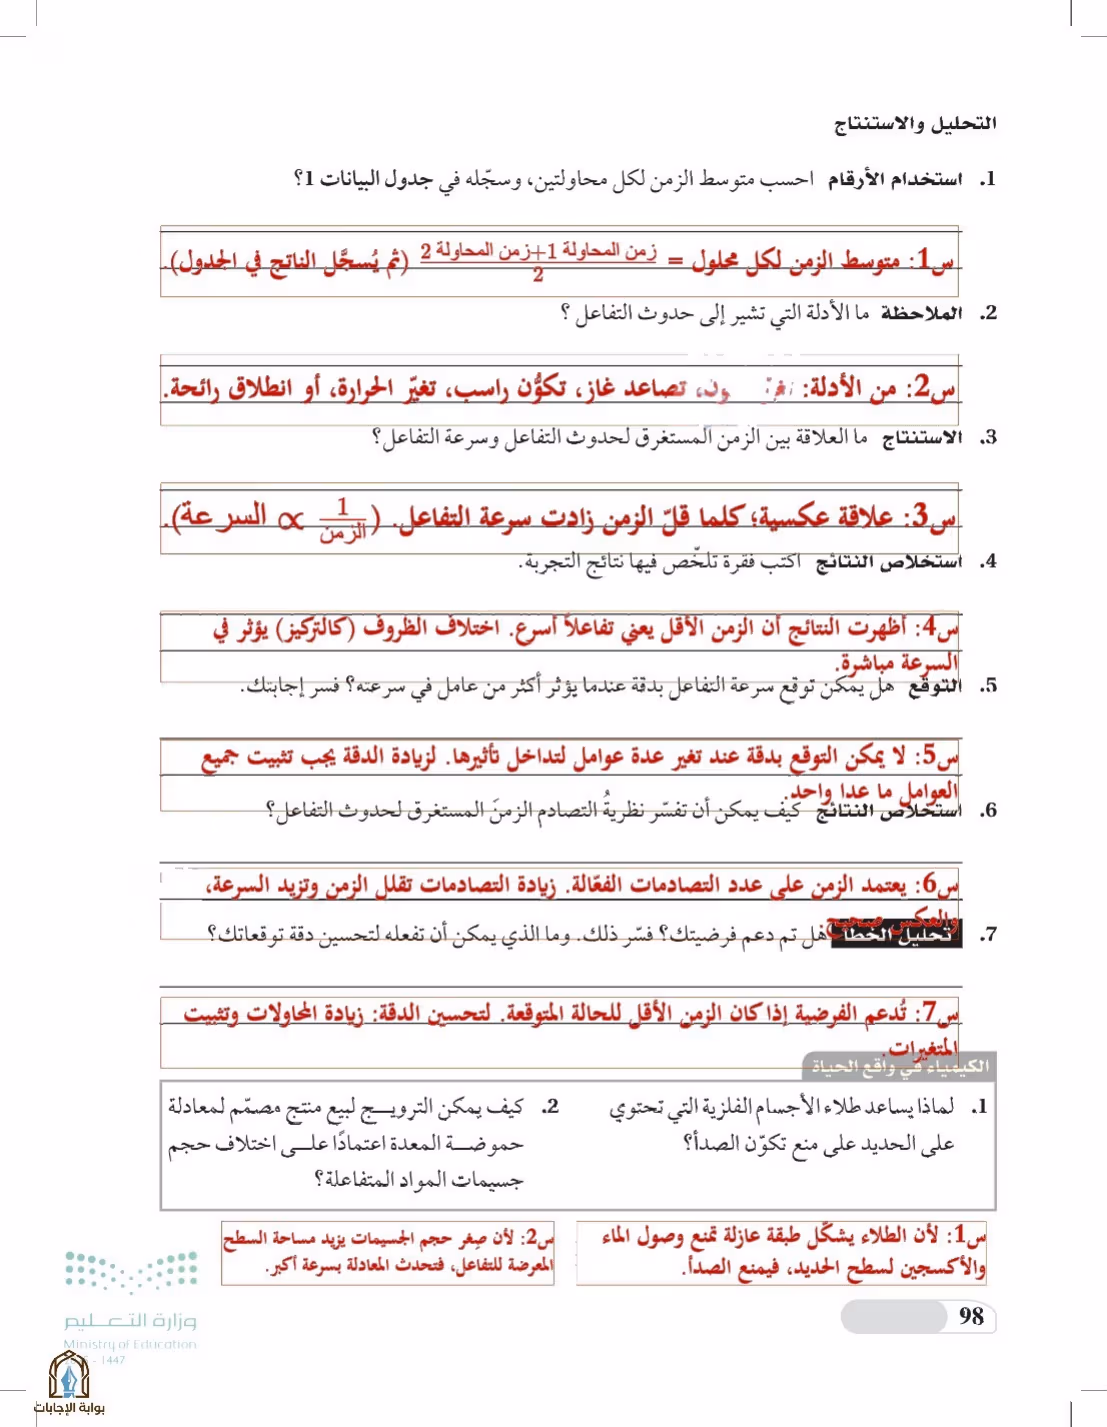 التحليل والاستنتاج
1. استخدام الأرقام احسب متوسط الزمن لكل محاولتين، وسجّله في جدول البيانات 1؟
س1: متوسط الزمن لكل محلول = زمن المحاولة 1+زمن المحاولة 2 / 2 (ثم يُسجَّل الناتج في الجدول).
2. الملاحظة ما الأدلة التي تشير إلى حدوث التفاعل ؟
س2: من الأدلة: تصاعد غاز، تكوُّن راسب، تغيّر الحرارة، أو انطلاق رائحة.
3. الاستنتاج ما العلاقة بين الزمن المستغرق لحدوث التفاعل وسرعة التفاعل؟
س3: علاقة عكسية؛ كلما قلّ الزمن زادت سرعة التفاعل. (السرعة ∝ 1/الزمن).
4. استخلاص النتائج اكتب فقرة تلخّص فيها نتائج التجربة.
س4: أظهرت النتائج أن الزمن الأقل يعني تفاعلاً أسرع. اختلاف الظروف (كالتركيز) يؤثر في
السرعة مباشرة.
5. التوقع هل يمكن توقع سرعة التفاعل بدقة عندما يؤثر أكثر من عامل في سرعته؟ فسر إجابتك.
س5: لا يمكن التوقع بدقة عند تغير عدة عوامل لتداخل تأثيرها. لزيادة الدقة يجب تثبيت جميع
العوامل ما عدا واحد.
6. استخلاص النتائج كيف يمكن أن تفسّر نظريةُ التصادم الزمنَ المستغرق لحدوث التفاعل؟
س6: يعتمد الزمن على عدد التصادمات الفعّالة. زيادة التصادمات تقلل الزمن وتزيد السرعة،
والعكس صحيح.
7. تحليل الخطأ هل تم دعم فرضيتك؟ فسّر ذلك. وما الذي يمكن أن تفعله لتحسين دقة توقعاتك؟
س7: تُدعم الفرضية إذا كان الزمن الأقل للحالة المتوقعة. لتحسين الدقة: زيادة المحاولات وتثبيت
المتغيرات.
الكيمياء في واقع الحياة
1. لماذا يساعد طلاء الأجسام الفلزية التي تحتوي
على الحديد على منع تكوّن الصدأ؟
2. كيف يمكن الترويج لبيع منتج مصمّم لمعادلة
حموضة المعدة اعتمادًا على اختلاف حجم
جسيمات المواد المتفاعلة؟
س1: لأن الطلاء يشكّل طبقة عازلة تمنع وصول الماء
والأكسجين لسطح الحديد، فيمنع الصدأ.
س2: لأن صِغر حجم الجسيمات يزيد مساحة السطح
المعرضة للتفاعل، فتحدث المعادلة بسرعة أكبر.
وزارة التعليم
Ministry of Education
- 1447
98
بوابة الإجابات